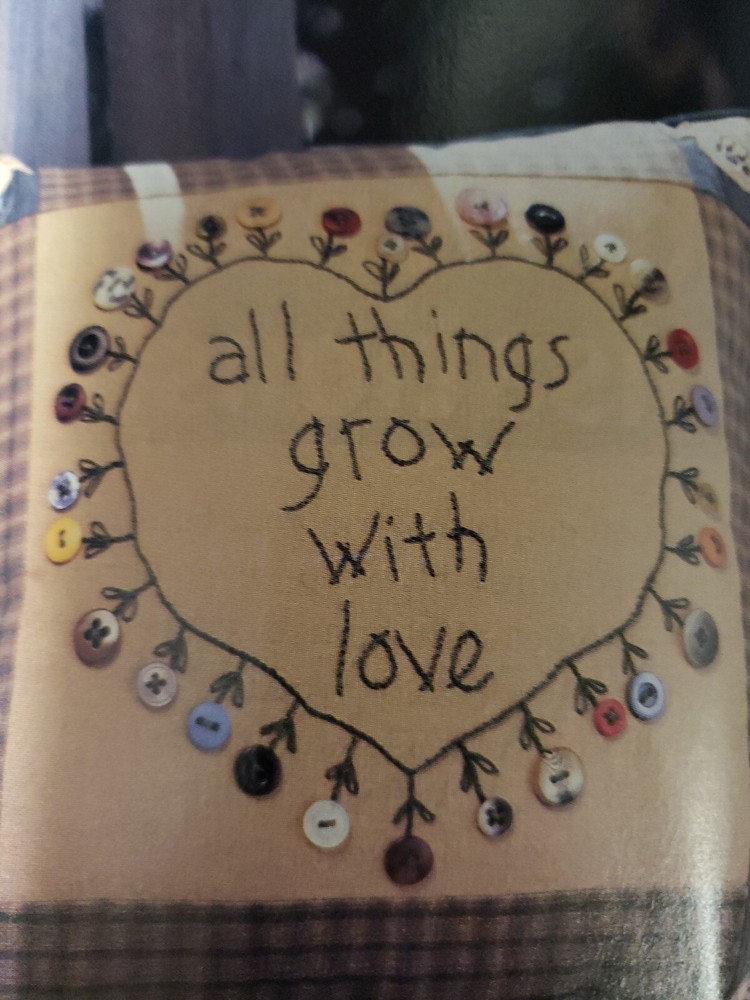 all things
grow
with
love